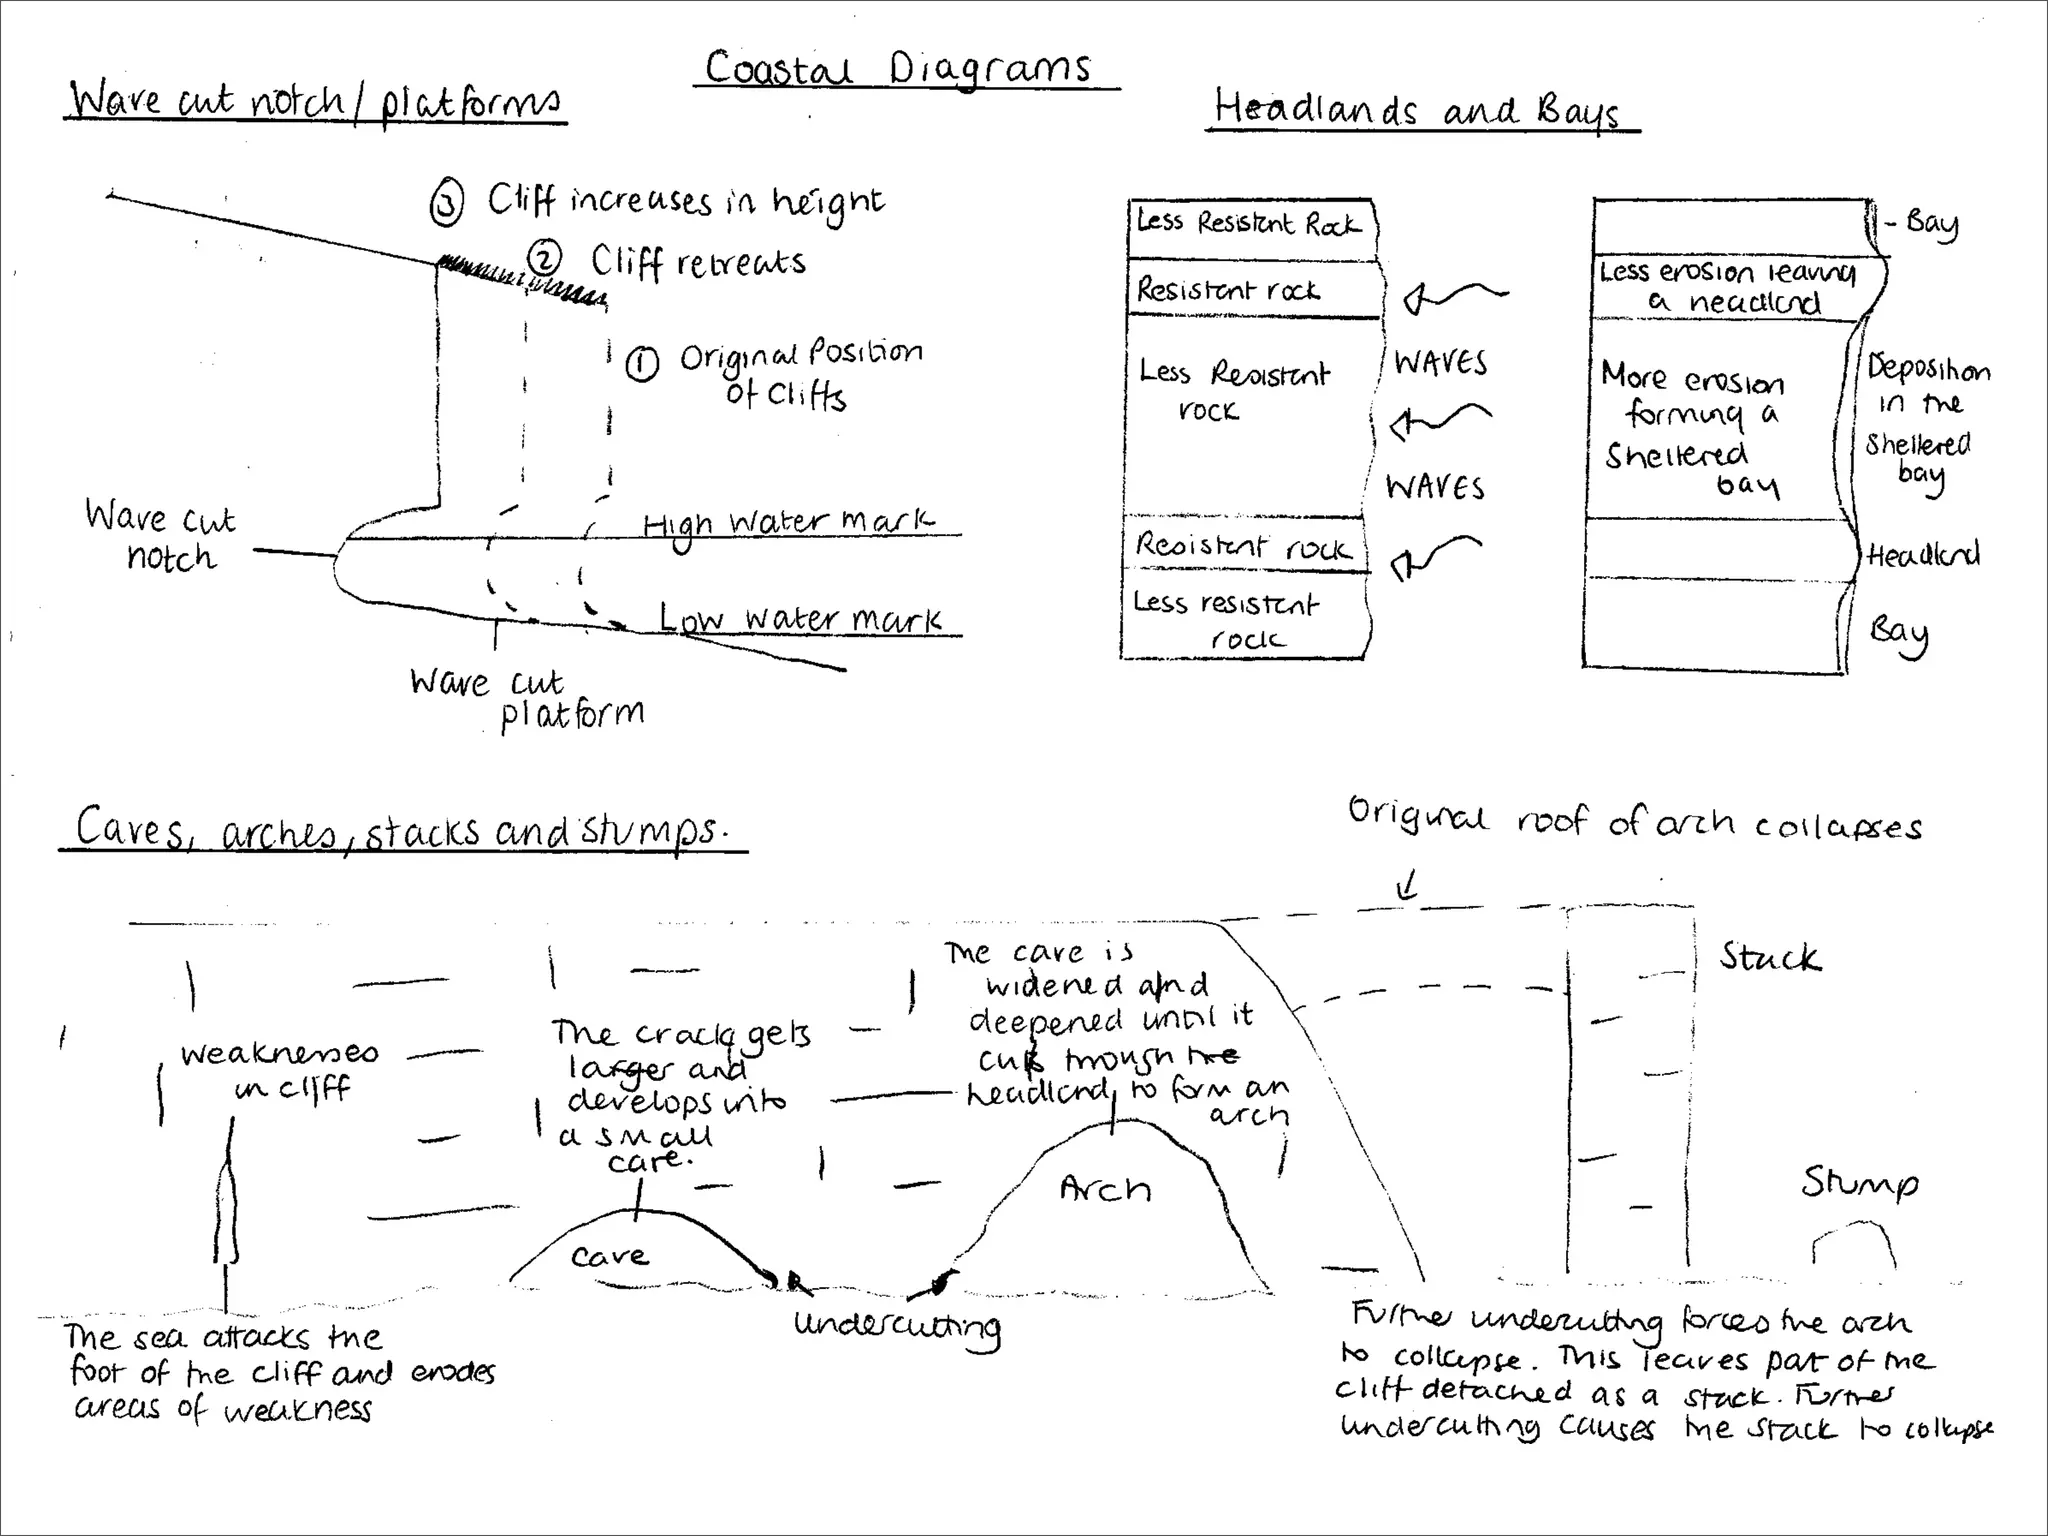 Coastal Diagrams
Wave cut notch/platforms
③ Cliff increases in height
② Cliff retreats
① Original Position
of Cliffs
Wave cut
notch
High water mark
Low water mark
Wave cut
platform
Headlands and Bays
Less Resistant Rock
Resistant rock
Less Resistant
rock
Resistant rock
Less resistant
rock
WAVES
WAVES
- Bay
Less erosion leaving
a headland
More erosion
forming a
Sheltered
bay
Deposition
in the
Sheltered
bay
Headland
Bay
Caves, arches, stacks and stumps.
Original roof of arch collapses
weaknesses
in cliff
The crack gets
larger and
develops into
a small
cave.
The cave is
widened and
deepened until it
cuts through the
headland, to form an
arch
Stack
Stump
Cave
Arch
undercutting
The sea attacks the
foot of the cliff and erodes
areas of weakness
Further undercutting forces the arch
to collapse. This leaves part of the
cliff detached as a stack. Further
undercutting causes the stack to collapse